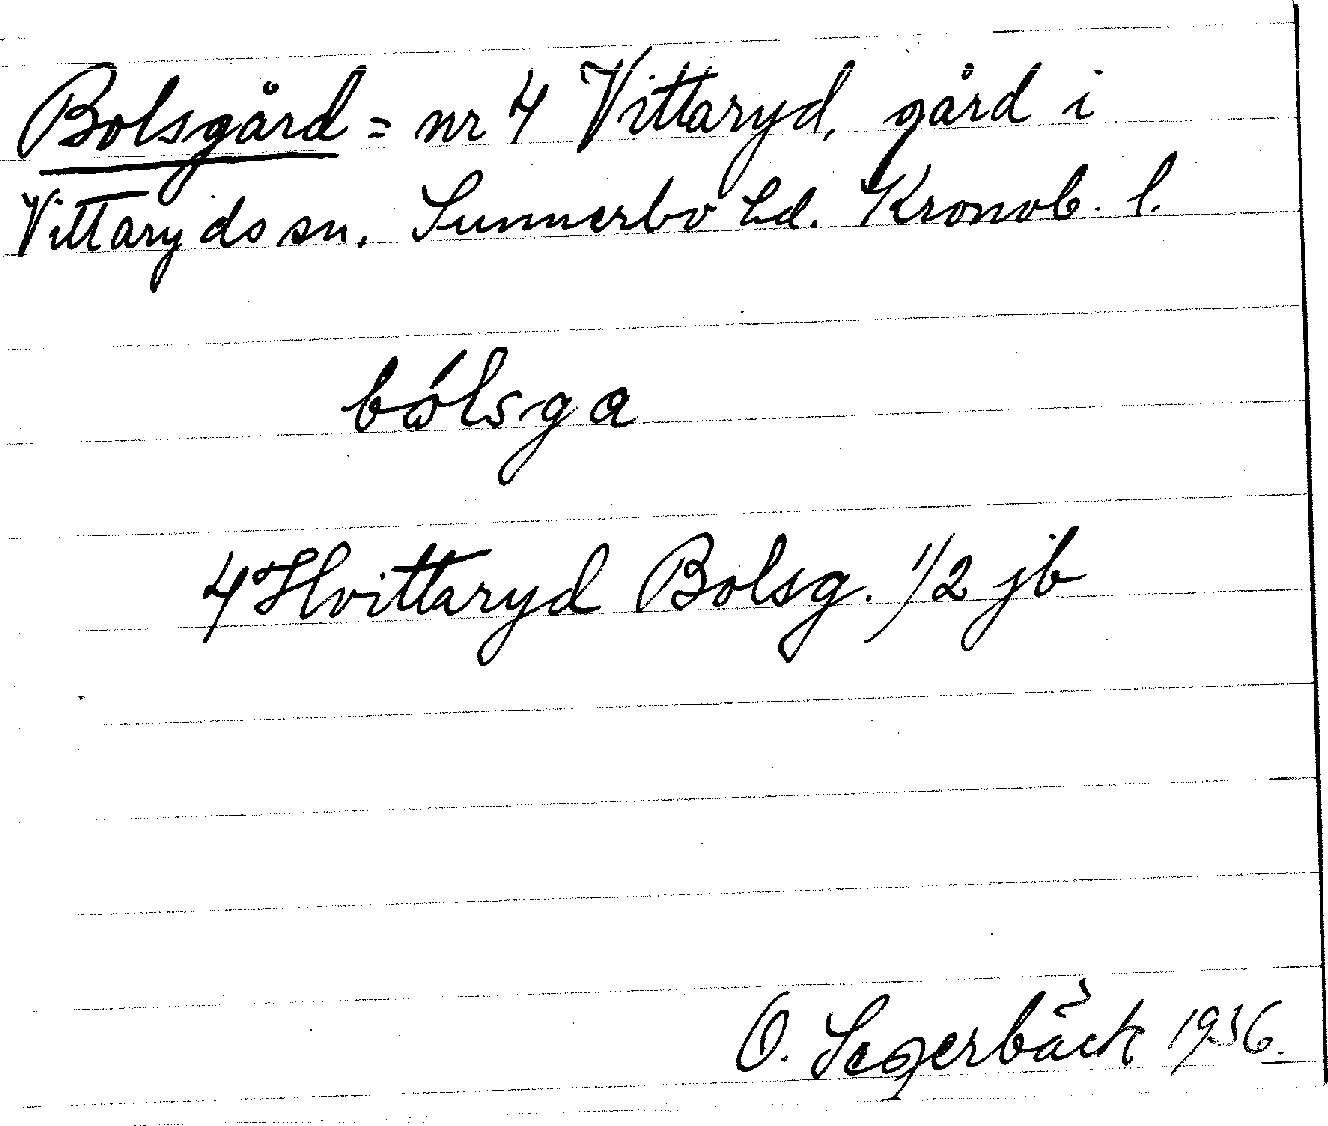 Bolsgård = nr 4 Vittaryd, gård i
Vittaryds sn. Sunnerbo hd. Kronob. l.
bólsga
4 Hvittaryd Bolsg. 1/2 jb
O. Segerbäck 1936.